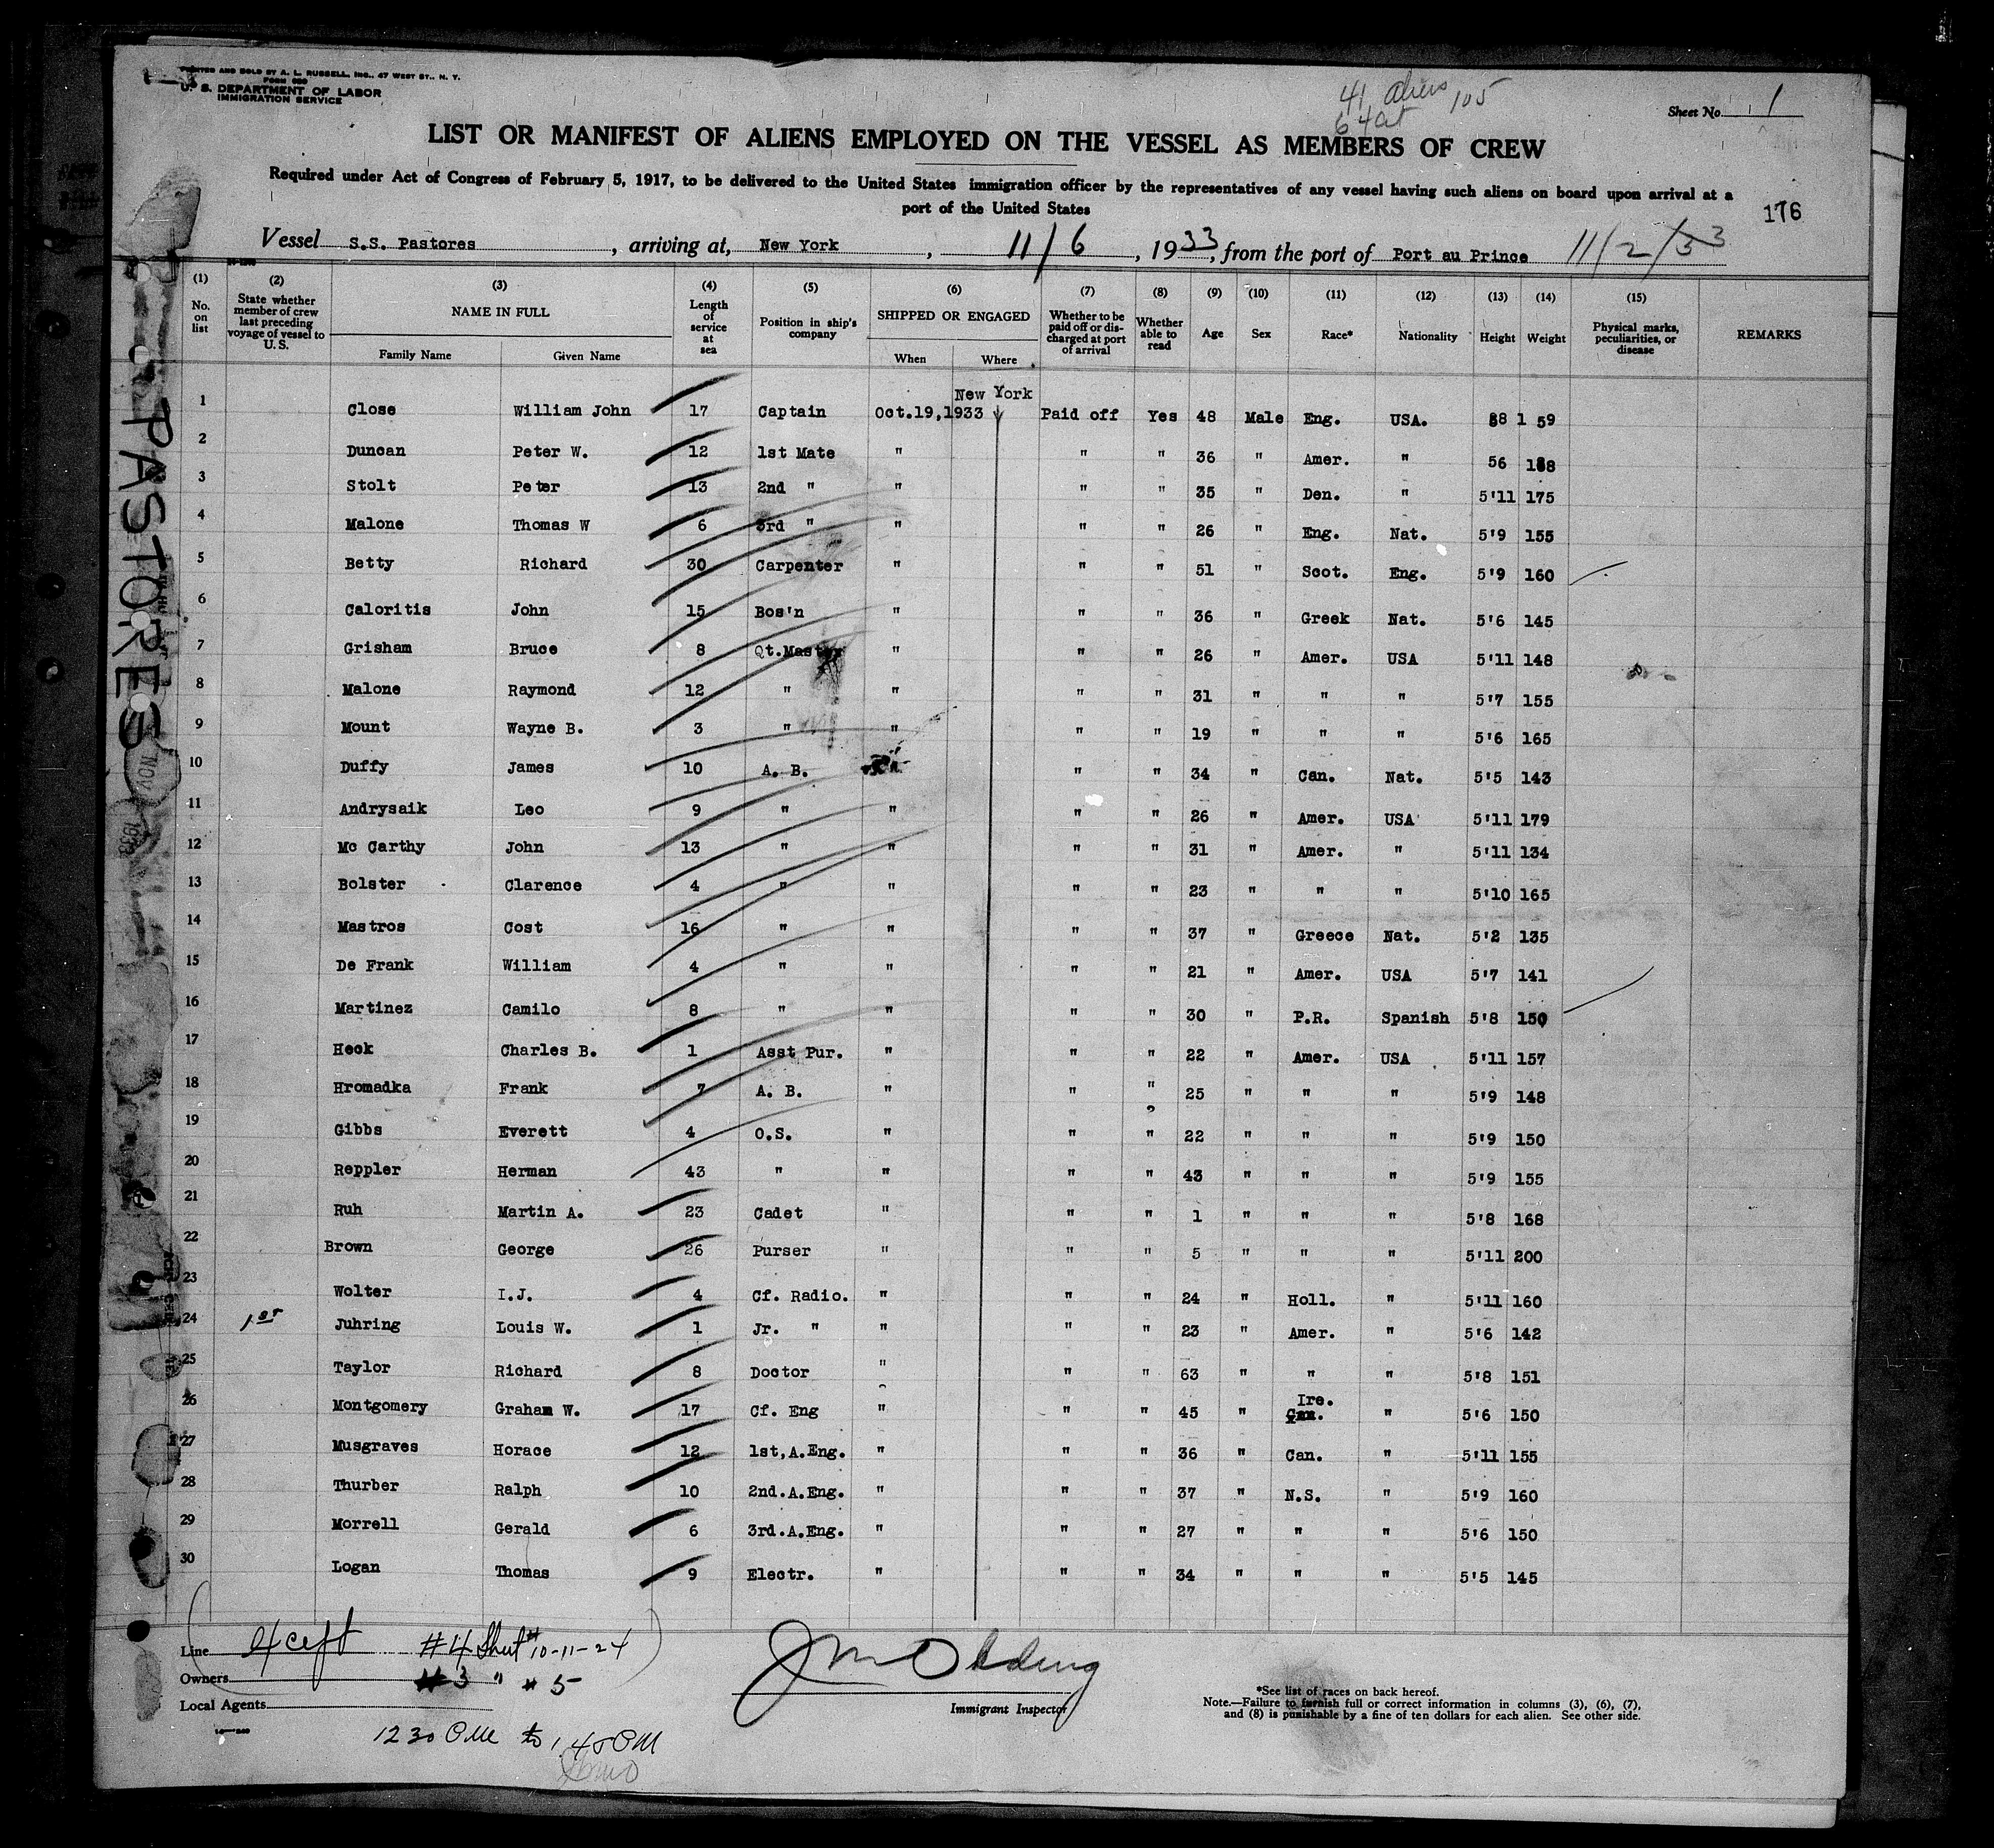 PRINTED AND SOLD BY A. L. RUSSELL, INC., 47 WEST ST., N. Y.
FORM 680
U. S. DEPARTMENT OF LABOR
IMMIGRATION SERVICE
41 aliens 105
64 cit
Sheet No. 1
LIST OR MANIFEST OF ALIENS EMPLOYED ON THE VESSEL AS MEMBERS OF CREW
Required under Act of Congress of February 5, 1917, to be delivered to the United States immigration officer by the representatives of any vessel having such aliens on board upon arrival at a
port of the United States
176
Vessel S.S. Pastores, arriving at, New York, 11/6, 1933, from the port of Port au Prince 11/2/33
(1) No. on list
(2) State whether member of crew last preceding voyage of vessel to U. S.
(3) NAME IN FULL Family Name Given Name
(4) Length of service at sea
(5) Position in ship's company
(6) SHIPPED OR ENGAGED When Where
(7) Whether to be paid off or discharged at port of arrival
(8) Whether able to read
(9) Age
(10) Sex
(11) Race*
(12) Nationality
(13) Height
(14) Weight
(15) Physical marks, peculiarities, or disease
REMARKS
New York
1 Close William John 17 Captain Oct.19,1933 Paid off Yes 48 Male Eng. USA. 58 1 59
2 Duncan Peter W. 12 1st Mate " " " 36 " Amer. " 56 188
3 Stolt Peter 13 2nd " " " " 35 " Den. " 5'11 175
4 Malone Thomas W 6 3rd " " " " 26 " Eng. Nat. 5'9 155
5 Betty Richard 30 Carpenter " " " 51 " Scot. Eng. 5'9 160
6 Caloritis John 15 Bos'n " " " 36 " Greek Nat. 5'6 145
7 Grisham Bruce 8 Qt.Master " " " 26 " Amer. USA 5'11 148
8 Malone Raymond 12 " " " " 31 " " " 5'7 155
9 Mount Wayne B. 3 " " " " 19 " " " 5'6 165
10 Duffy James 10 A. B. " " 34 " Can. Nat. 5'5 143
11 Andrysaik Leo 9 " " " " 26 " Amer. USA 5'11 179
12 Mc Carthy John 13 " " " " 31 " Amer. " 5'11 134
13 Bolster Clarence 4 " " " " 23 " " " 5'10 165
14 Mastros Cost 16 " " " " 37 " Greece Nat. 5'2 135
15 De Frank William 4 " " " " 21 " Amer. USA 5'7 141
16 Martinez Camilo 8 " " " " 30 " P.R. Spanish 5'8 150
17 Heck Charles B. 1 Asst Pur. " " " 22 " Amer. USA 5'11 157
18 Hromadka Frank 7 A. B. " " " 25 " " " 5'9 148
19 Gibbs Everett 4 O.S. " " " 22 " " " 5'9 150
20 Reppler Herman 43 " " " " 43 " " " 5'9 155
21 Ruh Martin A. 23 Cadet " " " 1 " " " 5'8 168
22 Brown George 26 Purser " " " 5 " " " 5'11 200
23 Wolter I.J. 4 Cf. Radio. " " " 24 " Holl. " 5'11 160
24 1st Juhring Louis W. 1 Jr. " " " " 23 " Amer. " 5'6 142
25 Taylor Richard 8 Doctor " " " 63 " " " 5'8 151
26 Montgomery Graham W. 17 Cf. Eng " " " 45 " Ire. " 5'6 150
27 Musgraves Horace 12 1st,A.Eng. " " " 36 " Can. " 5'11 155
28 Thurber Ralph 10 2nd.A.Eng. " " " 37 " N.S. " 5'9 160
29 Morrell Gerald 6 3rd.A.Eng. " " " 27 " " " 5'6 150
30 Logan Thomas 9 Electr. " " " 34 " " " 5'5 145
PASTORES
NOV 1933
Line
Owners
Local Agents
except #4 Sheet #10-11-24
#3 " #5
1230 PM to 1.45 PM
Immigrant Inspector
*See list of races on back hereof.
Note.—Failure to furnish full or correct information in columns (3), (6), (7),
and (8) is punishable by a fine of ten dollars for each alien. See other side.